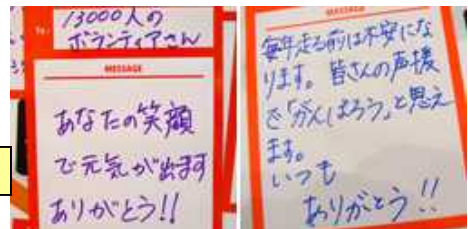 To:
13000人の
ボランティアさん
MESSAGE
あなたの笑顔
で元気が出ます
ありがとう!!
MESSAGE
毎年走る前は不安にな
ります。皆さんの声援
で「がんばろう」と思え
ます。
いつも
ありがとう!!